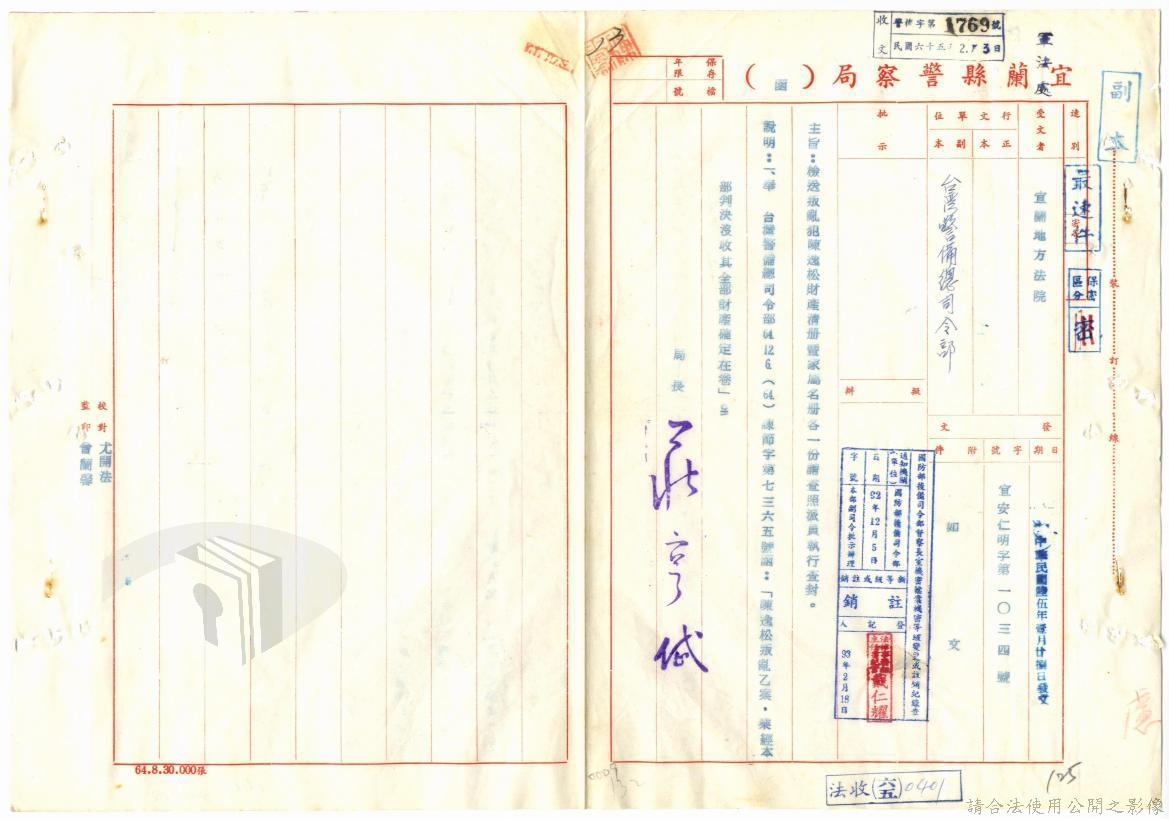 收文
警衛字第1769號
民國六十五年2.月3日
軍法處
副本
宜蘭縣警察局（函）
保存年限
檔號
速別
最速件
保密區分
密
受文者
宜蘭地方法院
行文單位
正本
副本
台灣警備總司令部
批示
擬辦
發文
日期
中華民國陸伍年壹月廿捌日發文
字號
宜安仁明字第一〇三四號
附件
如文
主旨：檢送叛亂犯陳逸松財產清册暨家屬名册各一份請查照派員執行查封。
說明：一、奉 台灣警備總司令部64 12 6（64）諫節字第七三六五號函：「陳逸松叛亂乙案，業經本
部判決沒收其全部財產確定在卷」
局長
國防部後備司令部督察長室機密檔案機密等級變更或註銷紀錄章
通知機關（單位）
國防部後備司令部
日期
92年12月5日
字號
本部副司令批示辦理
新等級或註銷
註銷
登記人
戴仁耀
93年2月18日
裝
訂
線
校對
尤開法
監印
曾蘭馨
64.8.30.000張
法收(六五)0401
125
請合法使用公開之影像